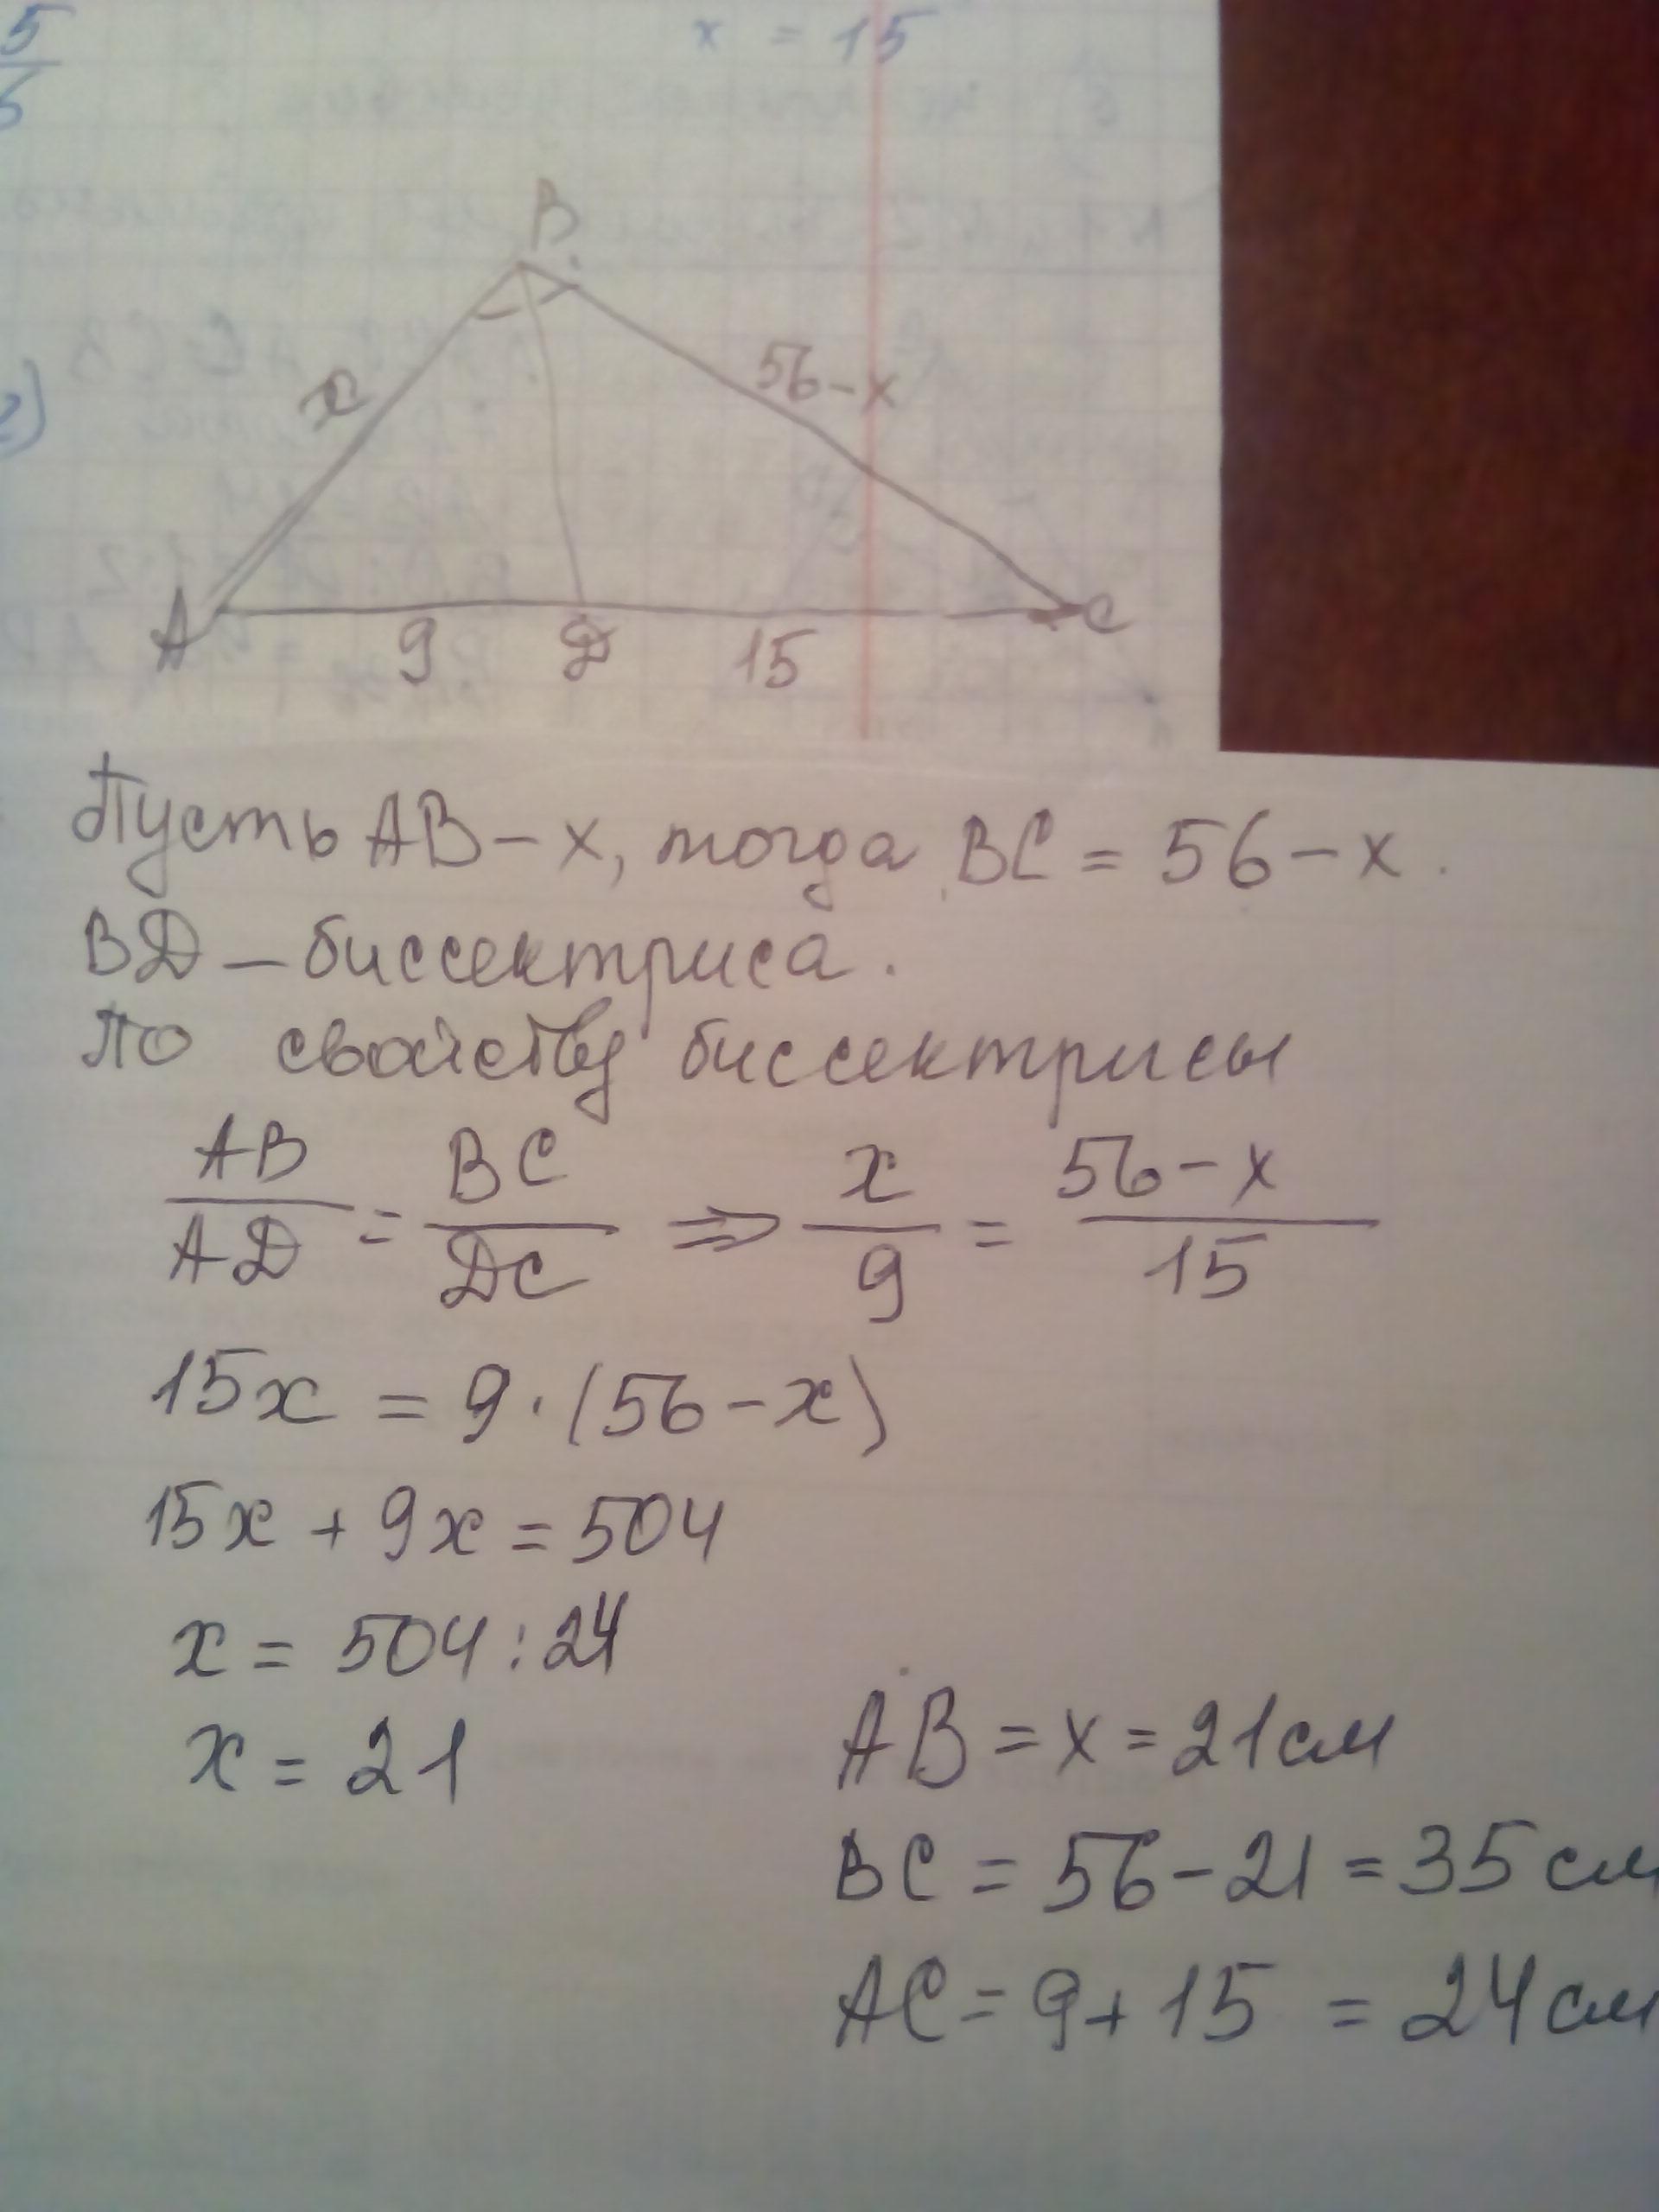 5
x = 15
2)
B
x
56-x
A
9
D
15
C
Пусть AB - x, тогда BC = 56 - x.
BD - биссектриса.
По свойству биссектрисы
AB/AD = BC/DC ⇒ x/9 = 56-x/15
15x = 9·(56-x)
15x + 9x = 504
x = 504 : 24
x = 21
AB = x = 21 см
BC = 56 - 21 = 35 см
AC = 9 + 15 = 24 см